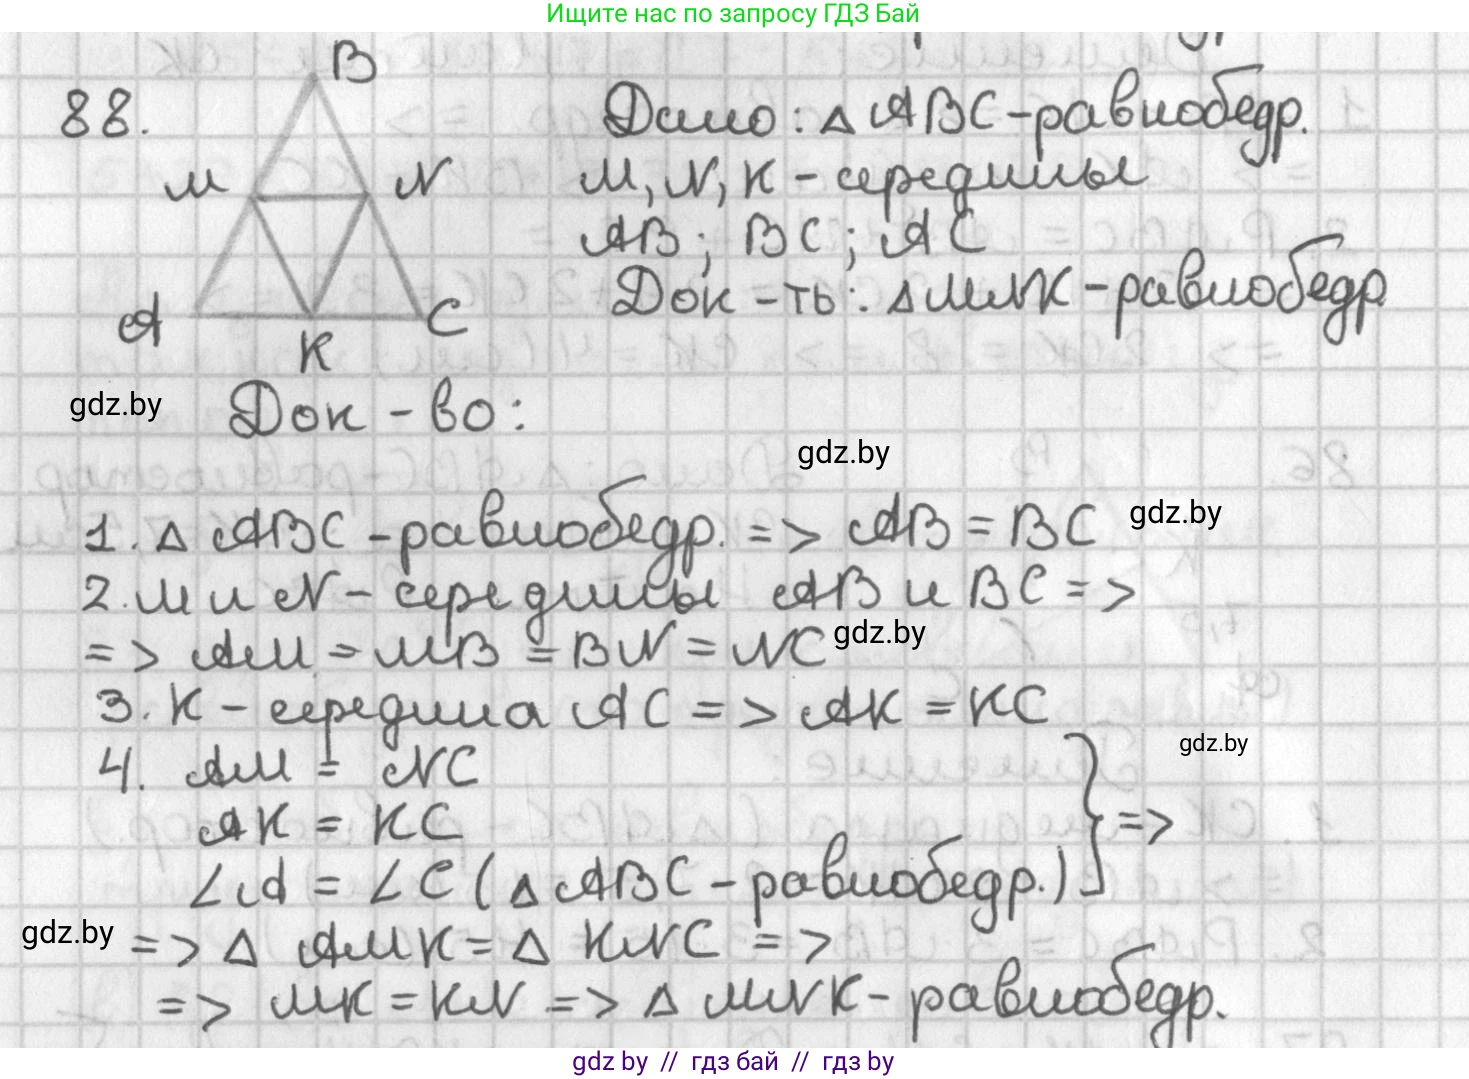 Ищите нас по запросу ГДЗ Бай
88.
B
M
N
A
K
C
Дано: △ ABC-равнобедр.
M, N, K - середины
AB; BC; AC
Док-ть: △MNK-равнобедр
gdz.by
Док-во:
gdz.by
1. △ ABC-равнобедр. => AB = BC
gdz.by
2. M и N - середины AB и BC =>
=> AM = MB = BN = NC
gdz.by
3. K - середина AC => AK = KC
4. AM = NC
gdz.by
AK = KC
} =>
∠A = ∠C (△ ABC - равнобедр.)
gdz.by
=> △ AMK = △ KNC =>
=> MK = KN => △ MNK - равнобедр.
gdz by // гдз бай // гдз by